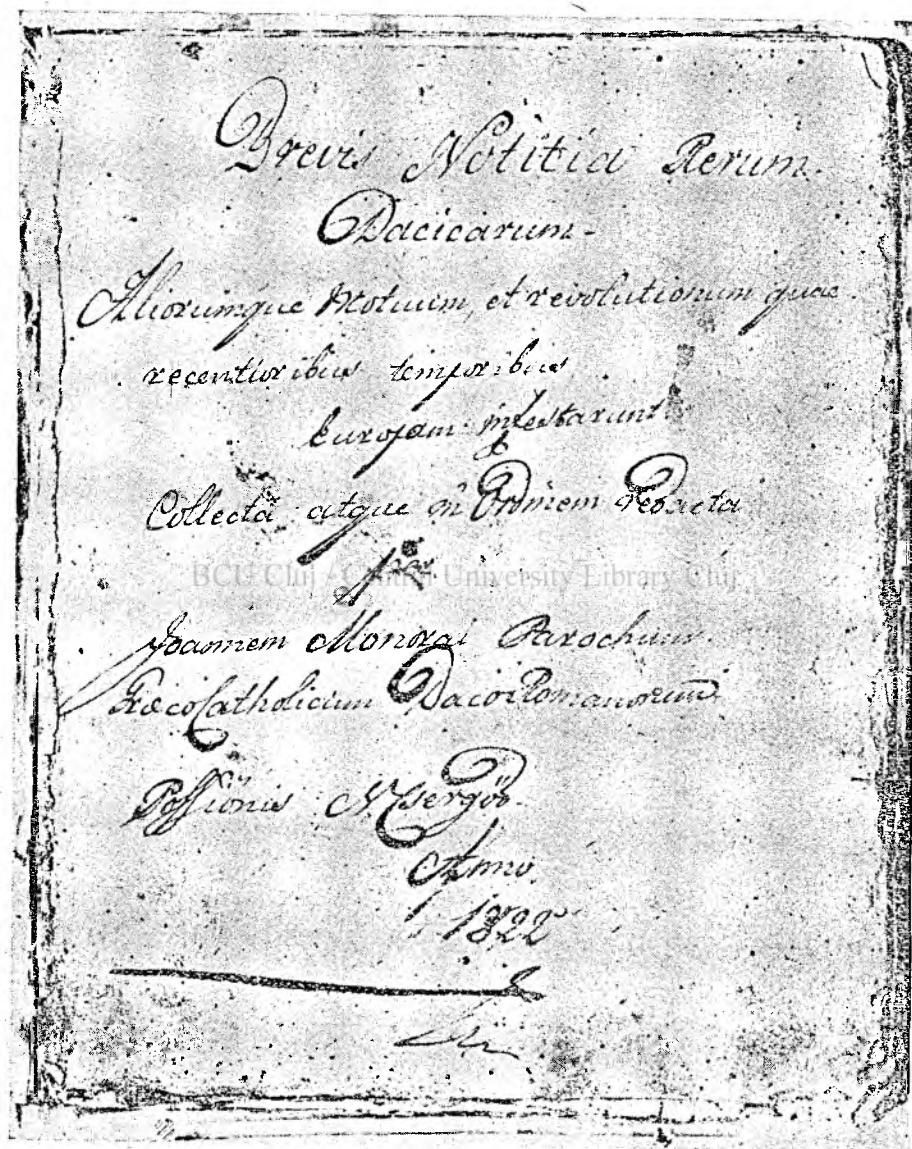 Brevis Notitia Rerum
Dacicarum.
Aliorumque Motuum, et revolutionum quae
recentioribus temporibus
Europam infestarunt
Collecta atque in Ordinem redacta
per
BCU Cluj / Central University Library Cluj
Joannem Monorai Parochum
GraecoCatholicum DacoRomanorum
Possionis N. Csergöd
Anno
1822